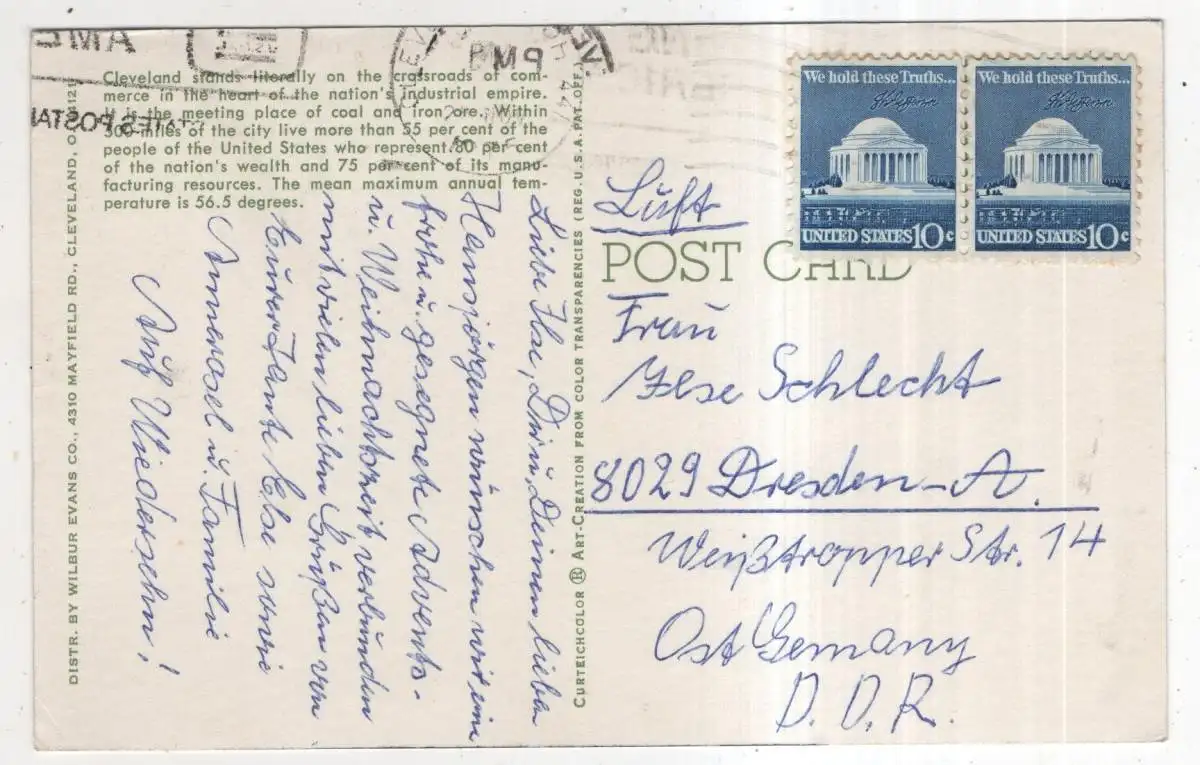 PM
Cleveland stands literally on the crossroads of com-
merce in the heart of the nation's industrial empire.
It is the meeting place of coal and iron ore. Within
500 miles of the city live more than 55 per cent of the
people of the United States who represent 80 per cent
of the nation's wealth and 75 per cent of its manu-
facturing resources. The mean maximum annual tem-
perature is 56.5 degrees.
DISTR. BY WILBUR EVANS CO., 4310 MAYFIELD RD., CLEVELAND, O. 44121
Liebe Ilse, Dir u. Deinen lieben
Hansjørgen wünschen wir eine
frohe u. gesegnete Advents-
u. Weihnachtszeit verbunden
mit vielen lieben Grüßen von
Eurer Tante Else sowie
Annerosel u. Familie
Auf Wiedersehn!
CURTEICHCOLOR ® ART-CREATION FROM COLOR TRANSPARENCIES (REG. U.S.A. PAT. OFF.)
We hold these Truths...
UNITED STATES 10c
We hold these Truths...
UNITED STATES 10c
Luft
POST CARD
Frau
Ilse Schlecht
8029 Dresden-A.
Weißtropper Str. 14
Ost Gemany
D. D. R.